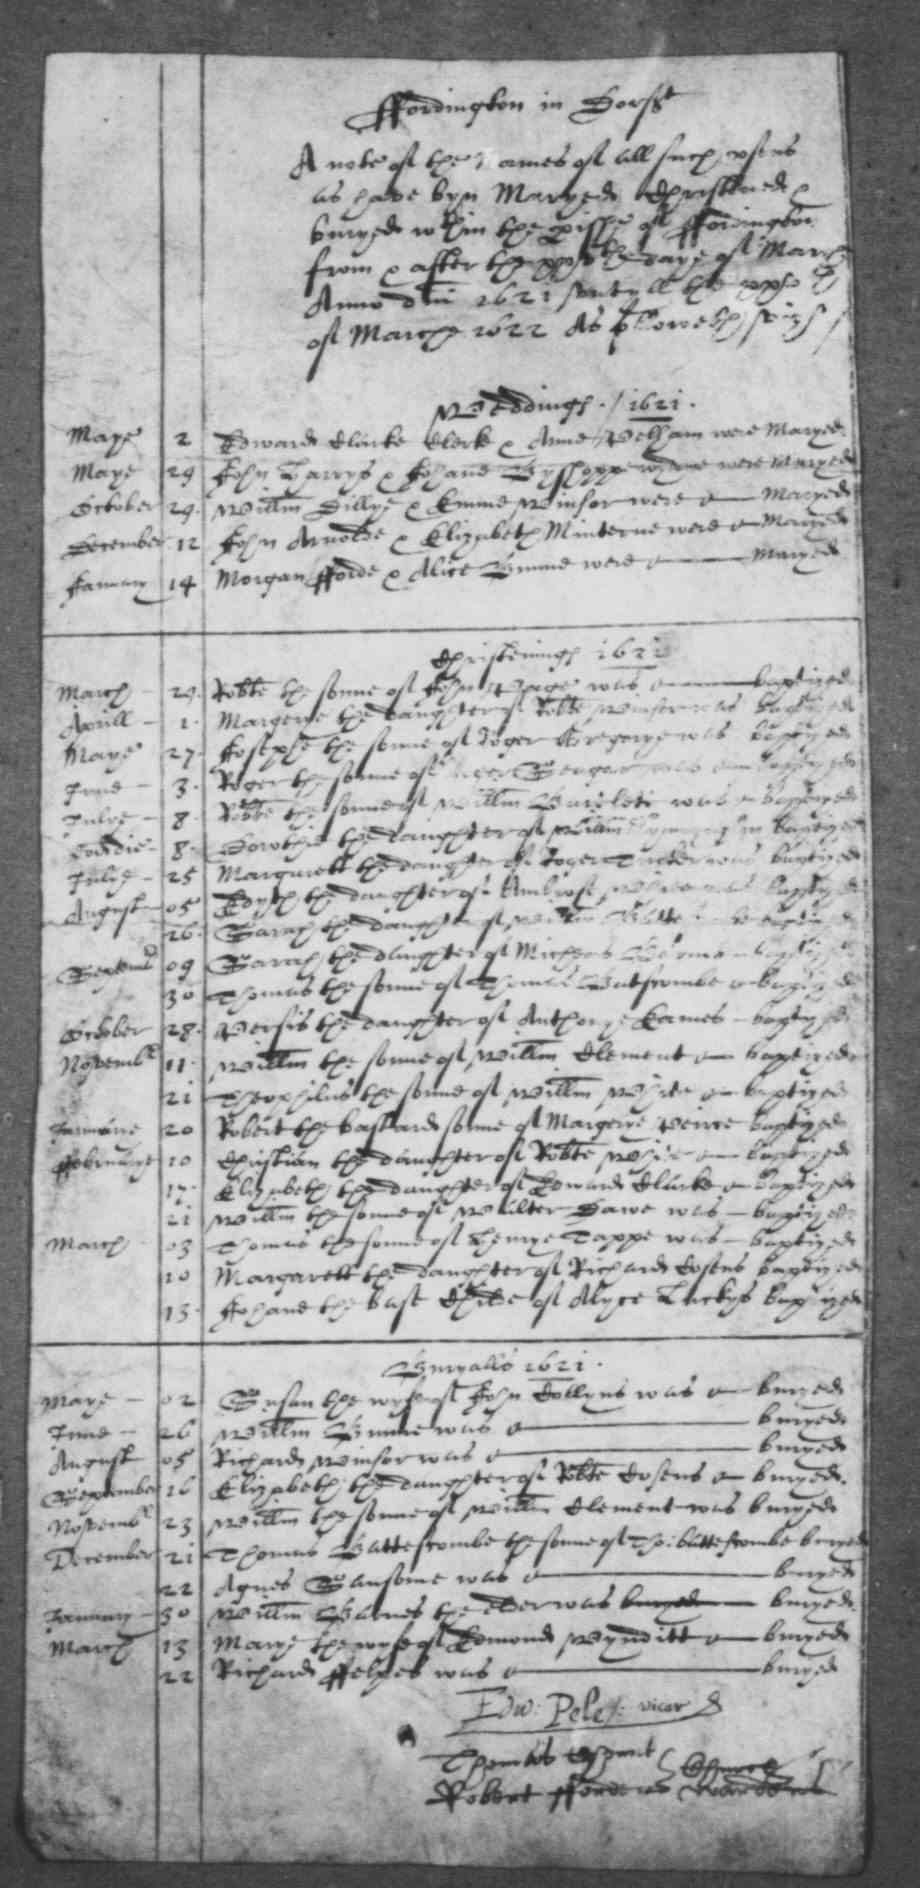 ffordington in Dorst
A note of the Names of all such psons
as have byn Maryed Christened &
buryed wthin the pishe of ffordington
from & after the xxvth daye of March
Anno dni 1621 untyll the xxvth
of Marche 1622 As followeth
Weddings . / 1621 .
Maye 2 Edward Clarke Clerk & Anne Welham were Maryed
Maye 29 John Harrys & Johane Bysshoppe were Maryed
October 29 . Willm Dillye & Emme Winsor were Maryed
December 12 John Arnolde & Elizabeth Minterne were Maryed
January 14 Morgan fforde & Alice were Maryed
Christenings 1621
March - 29 . Robte the sonne of John was baptized
Aprill - 1 . Margerye the daughter of Robte Winsor was baptized
Maye 27 . Josephe the sonne of Roger Gregorye was baptized
June - 3 . Roger the sonne of was baptized
Julye - 8 . Robte the sonne of Willm was baptized
Eoddie - 8 . Dorothie the daughter of Willm baptized
Julye - 25 Margarett the daughter of Roger was baptized
August - 05 Edyth the daughter of Ambrose baptized
26 . Sarah the daughter of
Septemb 09 Sarah the daughter of baptized
30 Thomas the sonne of Thomas Batscombe baptized
October 28 . Persis the daughter of Anthonye Eames - baptized
Novemb 11 . Willm the sonne of Willm Clement baptized
21 Theophilus the sonne of Willm White baptized
Januarie 20 Robert the bastard sonne of Margerye Peirce baptized
ffebruarye 10 Christian the daughter of Robte White baptized
17 . Elizabeth the daughter of Edward Clarke baptized
21 Willm the sonne of Walter Dawe was - baptized
March - 03 Thomas the sonne of Henrye Tappe was - baptized
10 Margarett the daughter of Richard Cosens baptized
13 . Johane the base Childe of Alyce Luckys baptized
Buryalls 1621 .
Maye - 02 Susan the wyfe of John Collyns was buryed
June - 26 Willm was buryed
August 05 Richard Winsor was buryed
September 16 Elizabeth the daughter of Robte Cosens buryed .
Novemb 23 Willm the sonne of Willm Clement was buryed
December 21 Thomas Battescombe the sonne of Tho: Battescombe buryed
22 Agnes Sansome was buryed
January - 30 Willm Barnes the elder was buryed buryed
March 13 Marye the wyfe of Edmond buryed
22 Richard ffelpes was buryed
Edw: Pele : vicar
Thomas
Robert fforde Church Wardens